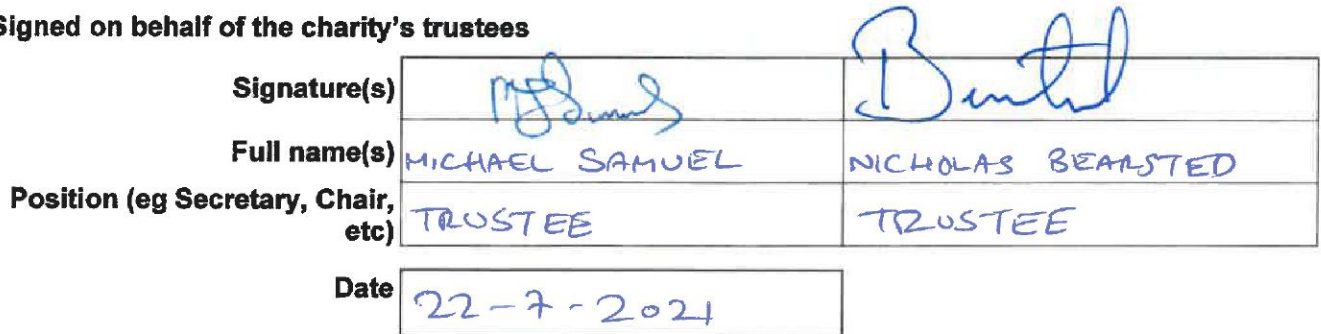 Signed on behalf of the charity's trustees
Signature(s)
Full name(s) MICHAEL SAMUEL NICHOLAS BEARSTED
Position (eg Secretary, Chair, etc) TRUSTEE TRUSTEE
Date 22-7-2021